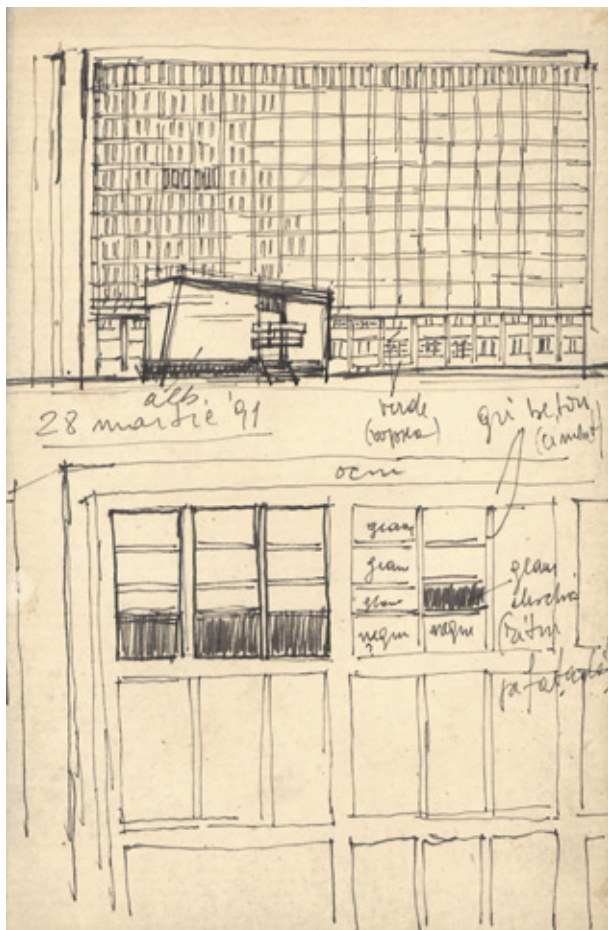 alb
28 martie '91
verde
(vopsea)
gri beton
(ciment)
ocru
geam
geam
geam
negru
?
negru
geam
deschis